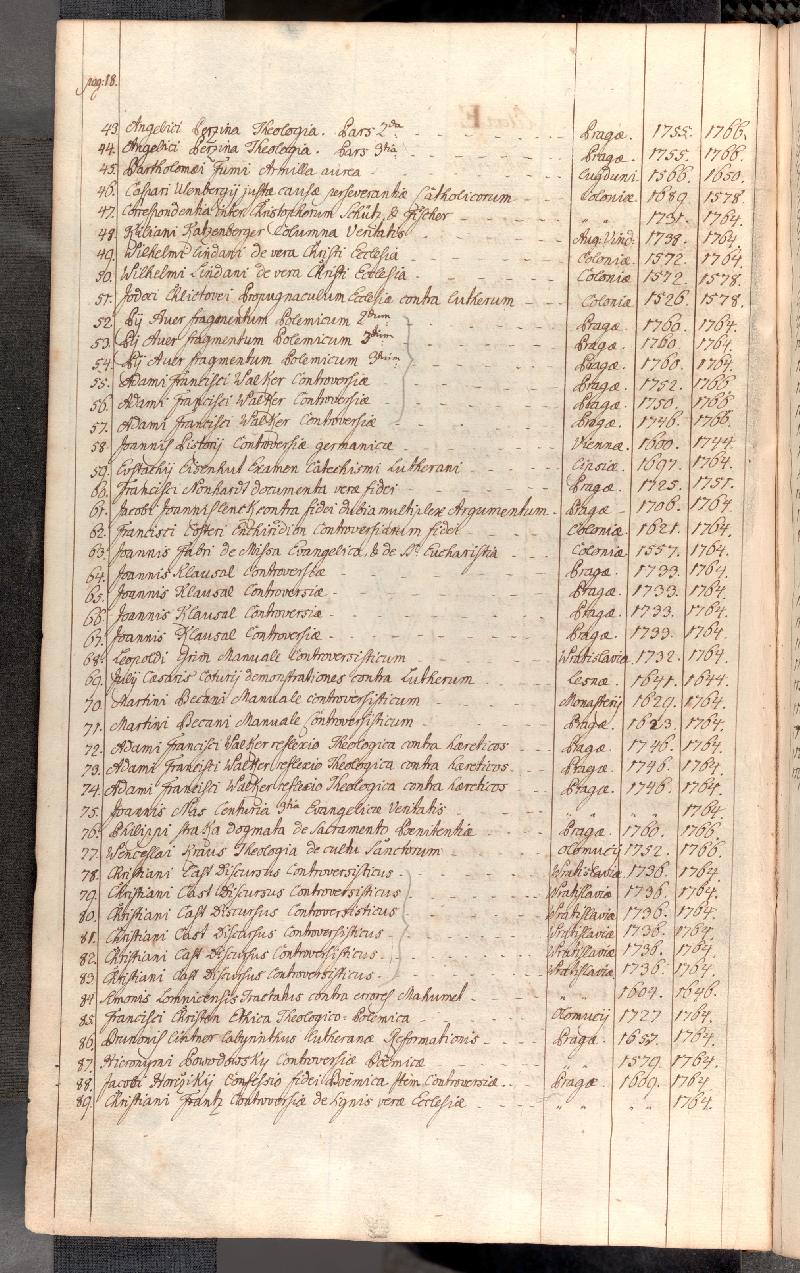 pag: 18.
43. Angelici Perzina Theologia. Pars 2da - Pragæ. 1755. 1766.
44. Angelici Perzina Theologia. Pars 3tia - Pragæ. 1755. 1766.
45. Bartholomæi Fumi Armilla aurea - Lugduni 1566. 1650.
46. Caspari Ulenbergij justæ causæ perseverantiæ Catholicorum - Coloniæ 1689. 1578.
47. Correspondentia inter Christophorum Schütz, & Fischer - " " 1731. 1764.
48. Kiliani Katzenberger Columna Veritatis - Aug: Vind: 1738. 1764.
49. Wilhelmi Lindani de vera Christi Ecclesia - Coloniæ 1572. 1764.
50. Wilhelmi Lindani de vera Christi Ecclesia - Coloniæ 1572. 1578.
51. Jodoci Clictovei Propugnaculum Ecclesiæ contra Lutherum - Coloniæ 1526. 1578.
52. Pij Aver fragmentum Polemicum 2dum - Pragæ. 1760. 1764.
53. Pij Aver fragmentum Polemicum - Pragæ. 1760. 1764.
54. Pij Aver fragmentum Polemicum 3tium - Pragæ. 1760. 1764.
55. Adami Francisci Walker Controversiæ - Pragæ. 1752. 1766.
56. Adami Francisci Walker Controversiæ - Pragæ. 1750. 1766.
57. Adami Francisci Walker Controversiæ - Pragæ. 1746. 1766.
58. Joannis Pistorij Controversiæ germanicæ Viennæ 1660. 1744.
59. Eustachij Eisenhut Examen Catechismi Lutherani - Lipsiæ 1697. 1764.
60. Francisci Nonhardt documenta veræ fidei - Pragæ 1725. 1751.
61. Jacobi Joannis contra fidei dubia multiplex Argumentum - Pragæ - 1706. 1764.
62. Francisci Costeri Enchiridion Controversiarum fidei - Coloniæ 1621. 1764.
63. Joannis Fabri de Missa Evangelica, & de SS. Eucharistia - Coloniæ 1557. 1764.
64. Joannis Klausal Controversiæ - Pragæ. 1733. 1764.
65. Joannis Klausal Controversiæ - Pragæ. 1733. 1764.
66. Joannis Klausal Controversiæ - Pragæ. 1733. 1764.
67. Joannis Klausal Controversiæ - Pragæ. 1733. 1764.
68. Leopoldi Grim Manuale Controversisticum Wratislavia 1732. 1764.
69. Julij Cæsaris Coturij demonstrationes contra Lutherum - Lesnæ 1641. 1644.
70. Martini Becani Manuale controversisticum - Monasterij 1629. 1764.
71. Martini Becani Manuale Controversisticum - Pragæ. 1623. 1764.
72. Adami Francisci Walker reflexio Theologica contra hæreticos - Pragæ. 1746. 1764.
73. Adami Francisci Walker reflexio Theologica contra hæreticos - Pragæ. 1746. 1764.
74. Adami Francisci Walker reflexio Theologica contra hæreticos - Pragæ. 1746. 1764.
75. Joannis Nas Centuria 3tia Evangelicæ Veritatis - " " 1764.
76. Philippi dogmata de Sacramento Pœnitentiæ - Pragæ. 1760. 1766.
77. Wenceslai Kraus Theologia de cultu Sanctorum - Olomucij 1752. 1766.
78. Christiani Cast Discursus Controversisticus - Wratislaviæ 1736. 1764.
79. Christiani Cast Discursus Controversisticus - Wratislaviæ 1736. 1764.
80. Christiani Cast Discursus Controversisticus - Wratislaviæ 1736. 1764.
81. Christiani Cast Discursus Controversisticus - Wratislaviæ 1736. 1764.
82. Christiani Cast Discursus Controversisticus - Wratislaviæ 1736. 1764.
83. Christiani Cast Discursus Controversisticus - Wratislaviæ 1736. 1764.
84. Simonis Lomnicensis Tractatus contra errores Mahumet - " " 1604. 1646.
85. Francisci Christen Ethica Theologico=Polemica - Olomucij 1727 1764.
86. Brunonis Lintner Labyrinthus Lutheranæ Reformationis - Pragæ. 1657. 1764.
87. Hieronymi Controversiæ Boëmicæ " " 1579. 1764.
88. Jacobi Horčizkij Confessio fidei Boëmica, item Controversiæ - Pragæ - 1669. 1764.
89. Christiani Frantz Controversiæ de signis veræ Ecclesiæ - " " " " 1764.